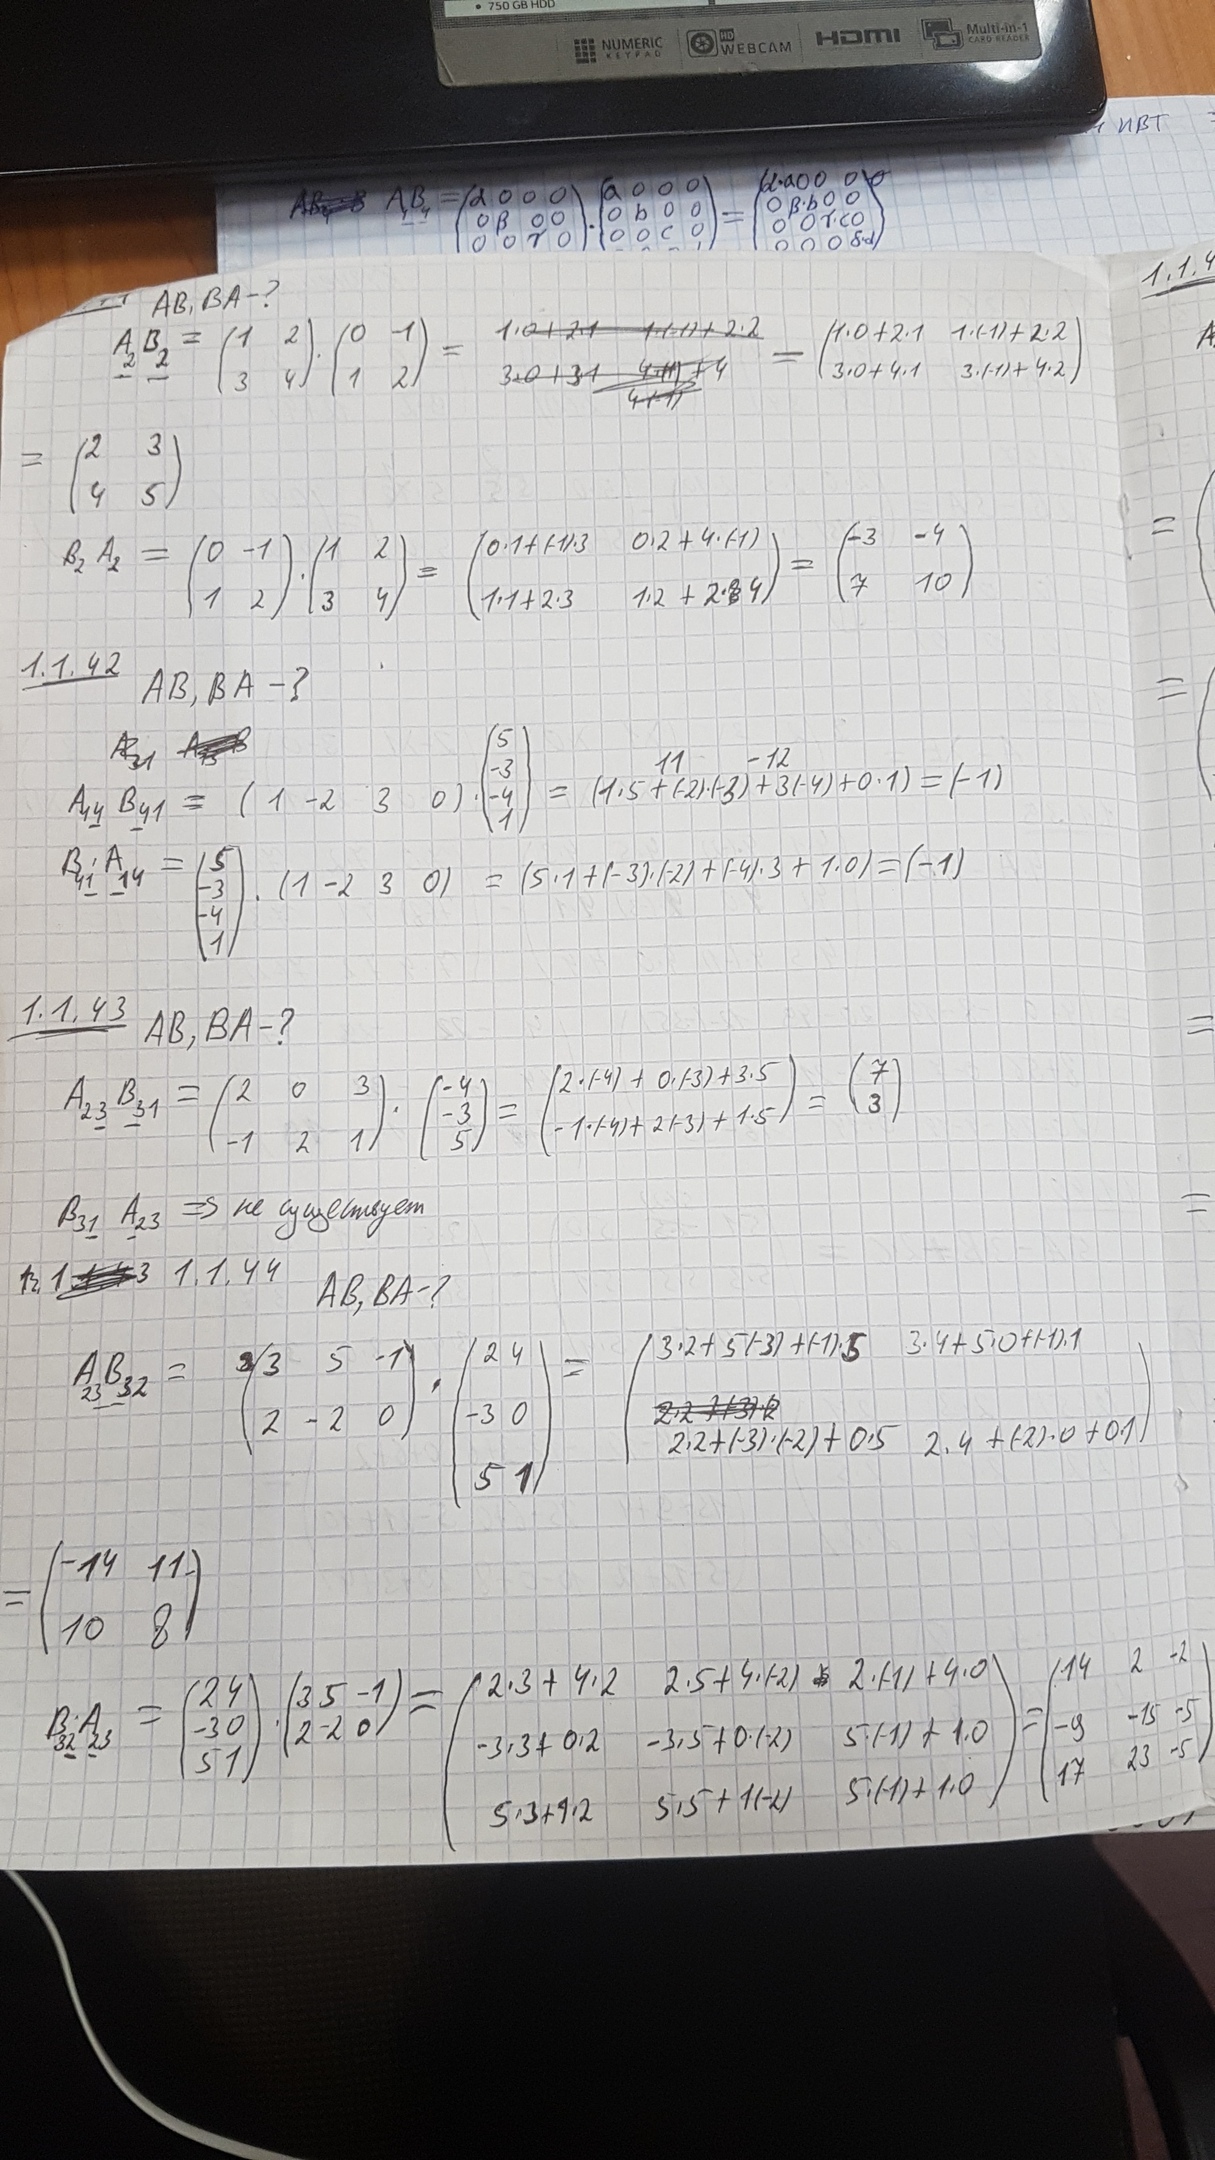 • 750 GB HDD
NUMERIC KEYPAD HD WEBCAM HDMI Multi-in-1 CARD READER
ИВТ
A₄B₄ = (α 0 0 0; 0 β 0 0; 0 0 γ 0) · (a 0 0 0; 0 b 0 0; 0 0 c 0) = (α·a 0 0 0; 0 β·b 0 0; 0 0 γ·c 0; 0 0 0 δ·d)
AB, BA-?
A₂B₂ = (1 2; 3 4) · (0 -1; 1 2) = = (1·0+2·1 1·(-1)+2·2; 3·0+4·1 3·(-1)+4·2)
= (2 3; 4 5)
B₂A₂ = (0 -1; 1 2) · (1 2; 3 4) = (0·1+(-1)·3 0·2+4·(-1); 1·1+2·3 1·2+2·4) = (-3 -4; 7 10)
1.1.42 AB, BA-?
A₁₄B₄₁ = (1 -2 3 0) · (5; -3; -4; 1) = (1·5+(-2)·(-3)+3(-4)+0·1) = (-1)
11 -12
B₄₁·A₁₄ = (5; -3; -4; 1) · (1 -2 3 0) = (5·1+(-3)·(-2)+(-4)·3+1·0) = (-1)
1.1.43 AB, BA-?
A₂₃B₃₁ = (2 0 3; -1 2 1) · (-4; -3; 5) = (2·(-4)+0·(-3)+3·5; -1·(-4)+2(-3)+1·5) = (7; 3)
B₃₁ A₂₃ => не существует
1.1.44
AB, BA-?
A₂₃B₃₂ = (3 5 -1; 2 -2 0) · (2 4; -3 0; 5 1) = (3·2+5(-3)+(-1)·5 3·4+5·0+(-1)·1; 2·2+(-3)·(-2)+0·5 2·4+(-2)·0+0·1)
= (-14 11; 10 8)
B₃₂·A₂₃ = (2 4; -3 0; 5 1) · (3 5 -1; 2 -2 0) = (2·3+4·2 2·5+4·(-2) 2·(-1)+4·0; -3·3+0·2 -3·5+0·(-2) 5·(-1)+1·0; 5·3+1·2 5·5+1(-2) 5·(-1)+1·0) = (14 2 -2; -9 -15 -5; 17 23 -5)